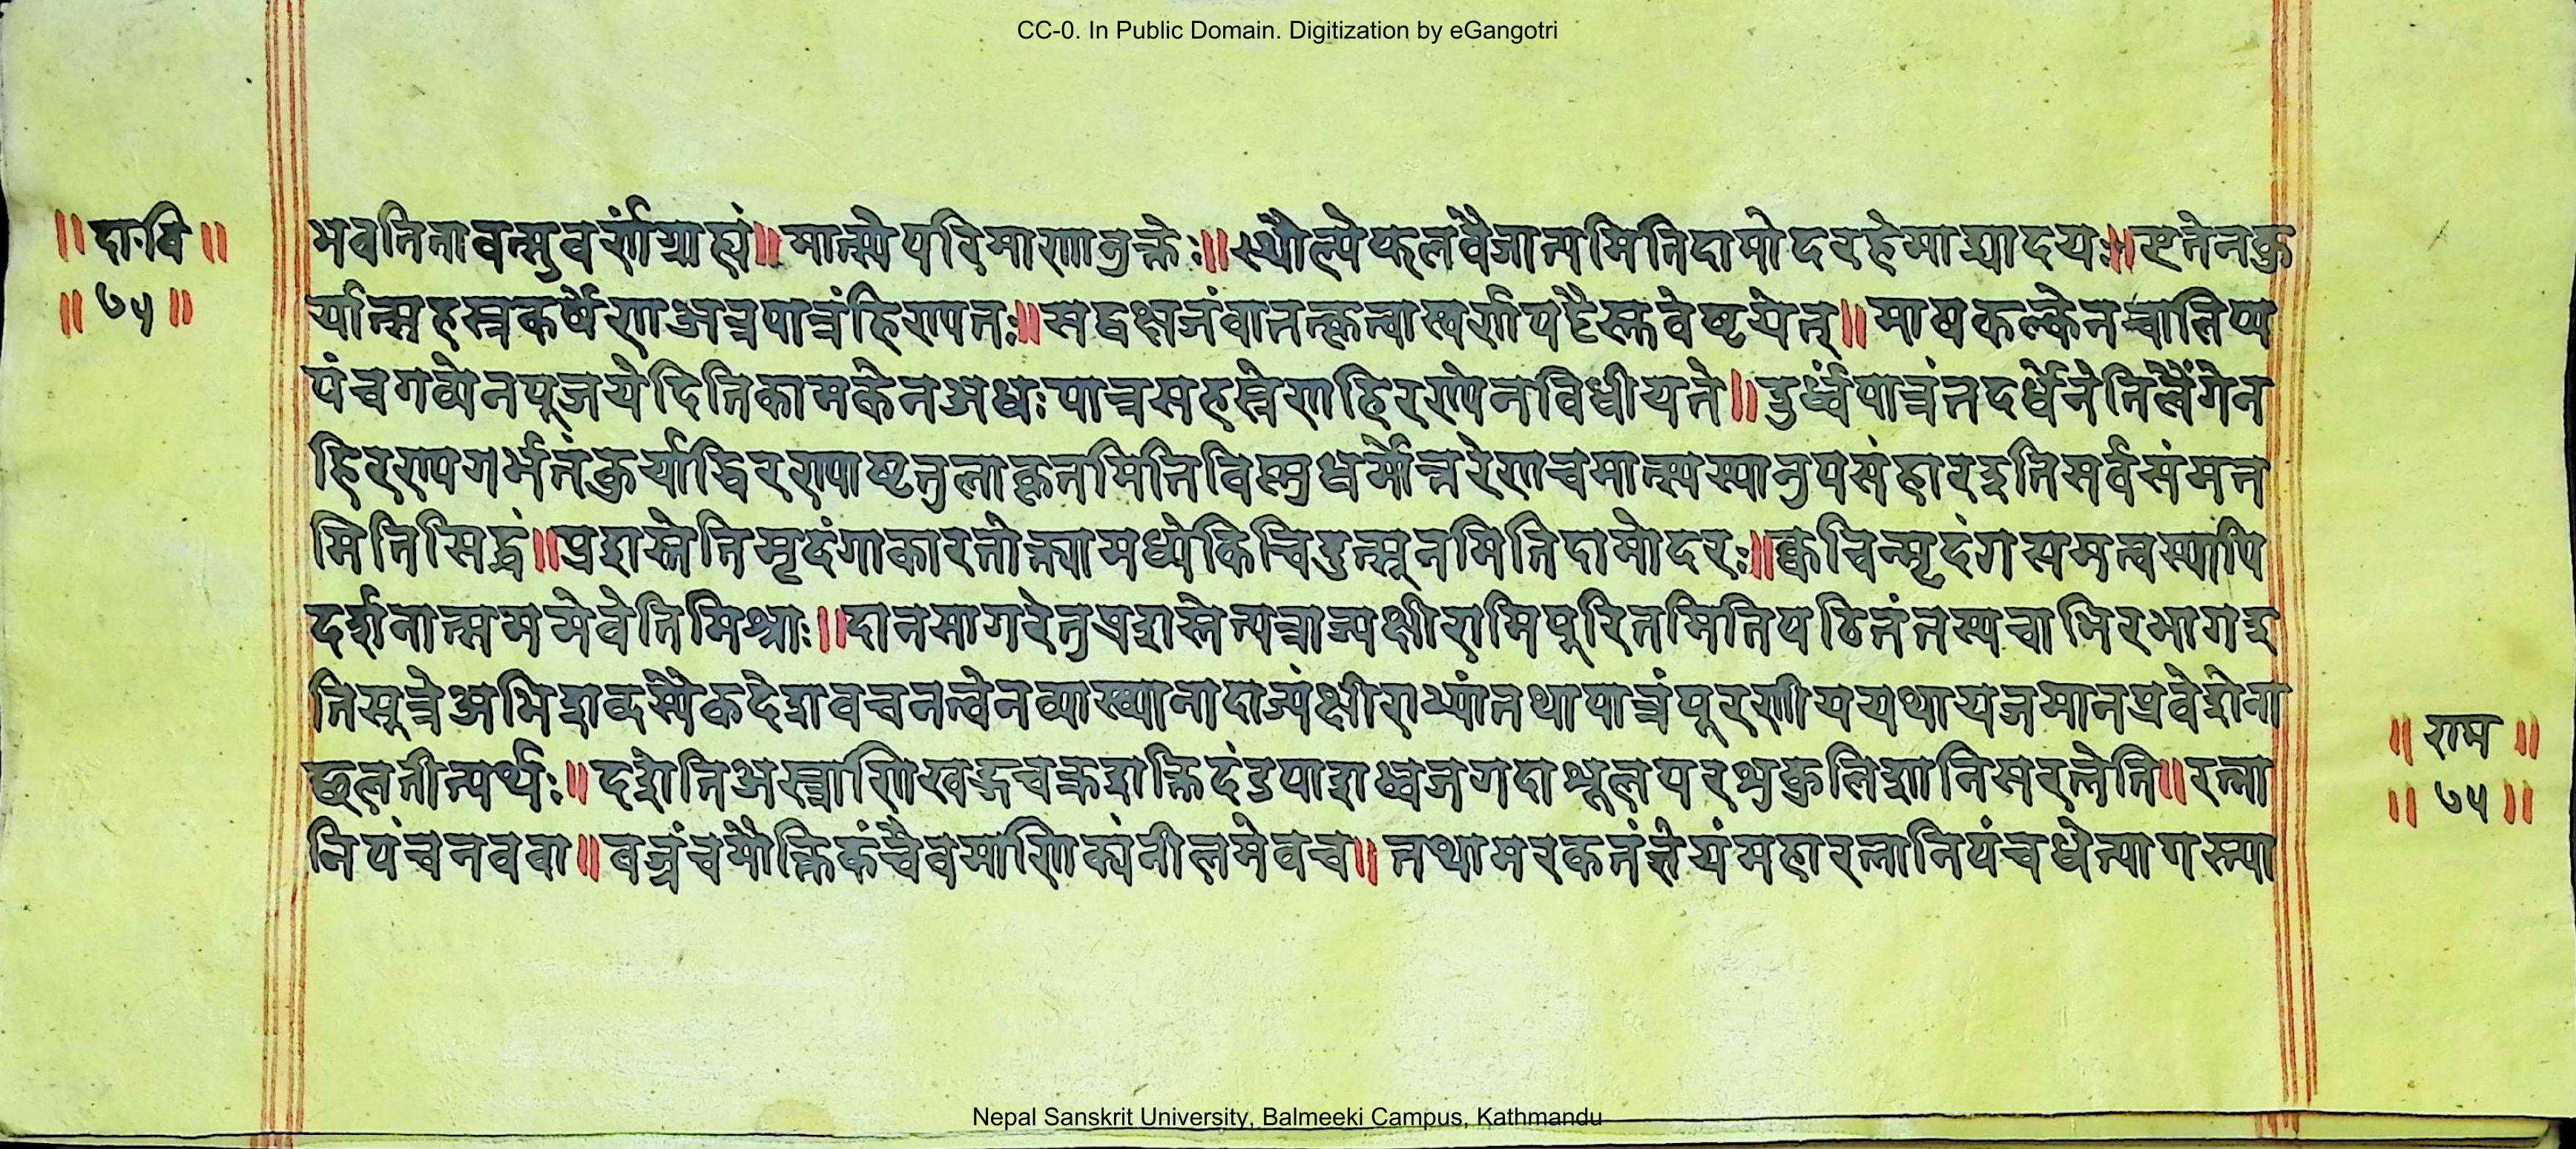 CC-0. In Public Domain. Digitization by eGangotri
॥ दा॰वि ॥
॥ ७५ ॥
भवतितावत्सुवर्णंग्राह्यं॥ मात्स्येपरिमाणानुक्तेः॥ स्थौल्येफलवैजात्यमितिदामोदरहेमाद्र्यादयः॥ एतेनकु
र्यात्सहस्रकर्षेणअन्नपात्रंहिरण्यतः॥ सद्वक्षजंवातत्कृत्वास्वर्णपट्टैस्तवेष्टयेत्॥ माषकल्केनचालिप्य
पंचगव्येनपूजयेदितिकामकेनअधःपात्रसहस्रेणहिरण्येनविधीयते॥ उर्ध्वंपात्रंतदर्धेनेतिलैंगेन
हिरण्यगर्भंतंकुर्याद्धिरण्याष्टतुलाकृतमितिविस्नुधर्मोत्तरेणचमात्स्यस्यानुपसंहारइतिसर्वसंमत
मितिसिद्धं॥ प्रशस्तेतिमृदंगाकारतोक्त्यामध्येकिचिदुत्सूनमितिदामोदरः॥ क्वचिन्मृदंगस्यसमत्वस्यापि
दर्शनात्सममेवेतिमिश्राः॥ दानसागरेतुप्रशस्तेत्यत्राज्यक्षीराभिपूरितमितिपठितंतस्यचाभिरभागइ
तिसूत्रेअभिशब्दस्यैकदेशवचनत्वेनव्याख्यानादाज्यंक्षीराभ्यांतथापात्रंपूरणीययथायजमानप्रवेशेना
छलतीत्यर्थः॥ दशेतिअस्त्राणिखड्गचक्रशक्तिदंडपाशध्वजगदाशूलपरशुकुलिशानिसरत्नेति॥ रत्ना
निपंचनववा॥ वज्रंचमौक्तिकंचैवमाणिक्यंनीलमेवच॥ तथामरकतंज्ञेयंमहारत्नानिपंचधेत्यागस्त्या
॥ राम ॥
॥ ७५ ॥
Nepal Sanskrit University, Balmeeki Campus, Kathmandu